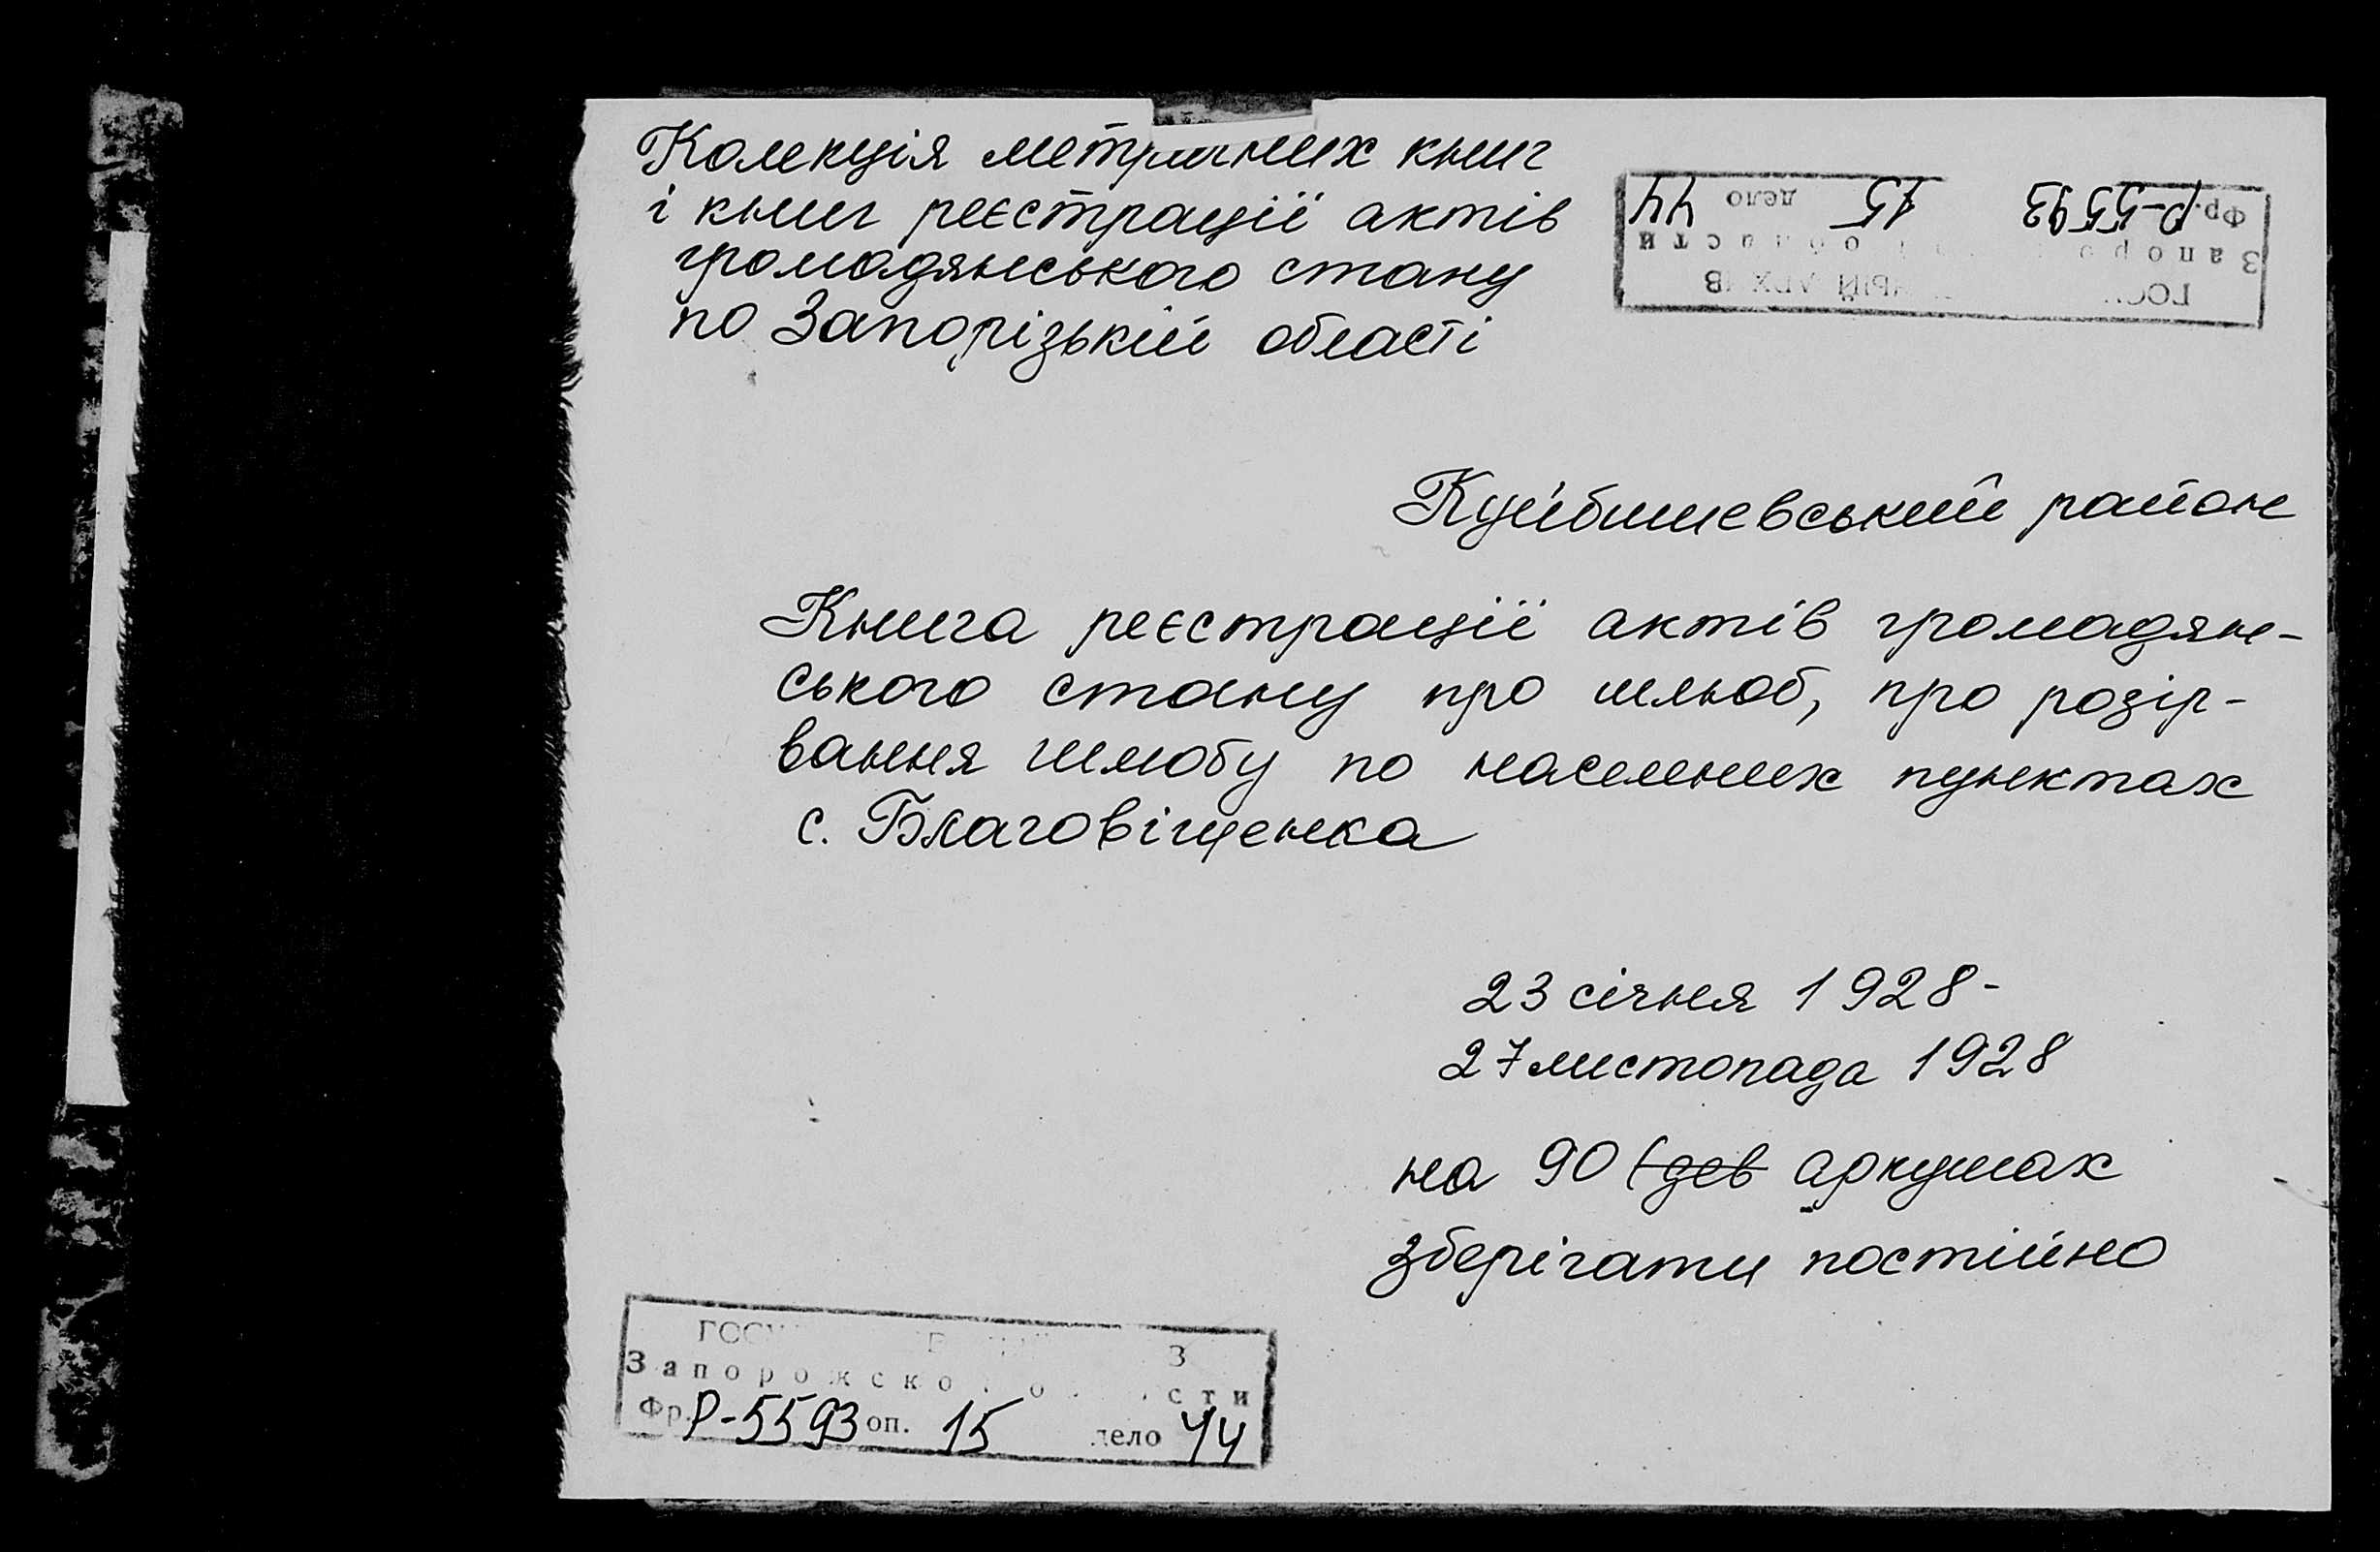 Колекція метричних книг
і книг реєстрації актів
громадянського стану
по Запорізькій області
Фр. Р-5593 15 дело 44
Куйбишевський район
Книга реєстрації актів громадян-
ського стану про шлюб, про розір-
вання шлюбу по населених пунктах
с. Благовіщенка
23 січня 1928-
27 листопада 1928
на 90 (дев аркушах
зберігати постійно
Фр. Р-5593 оп. 15 дело 44